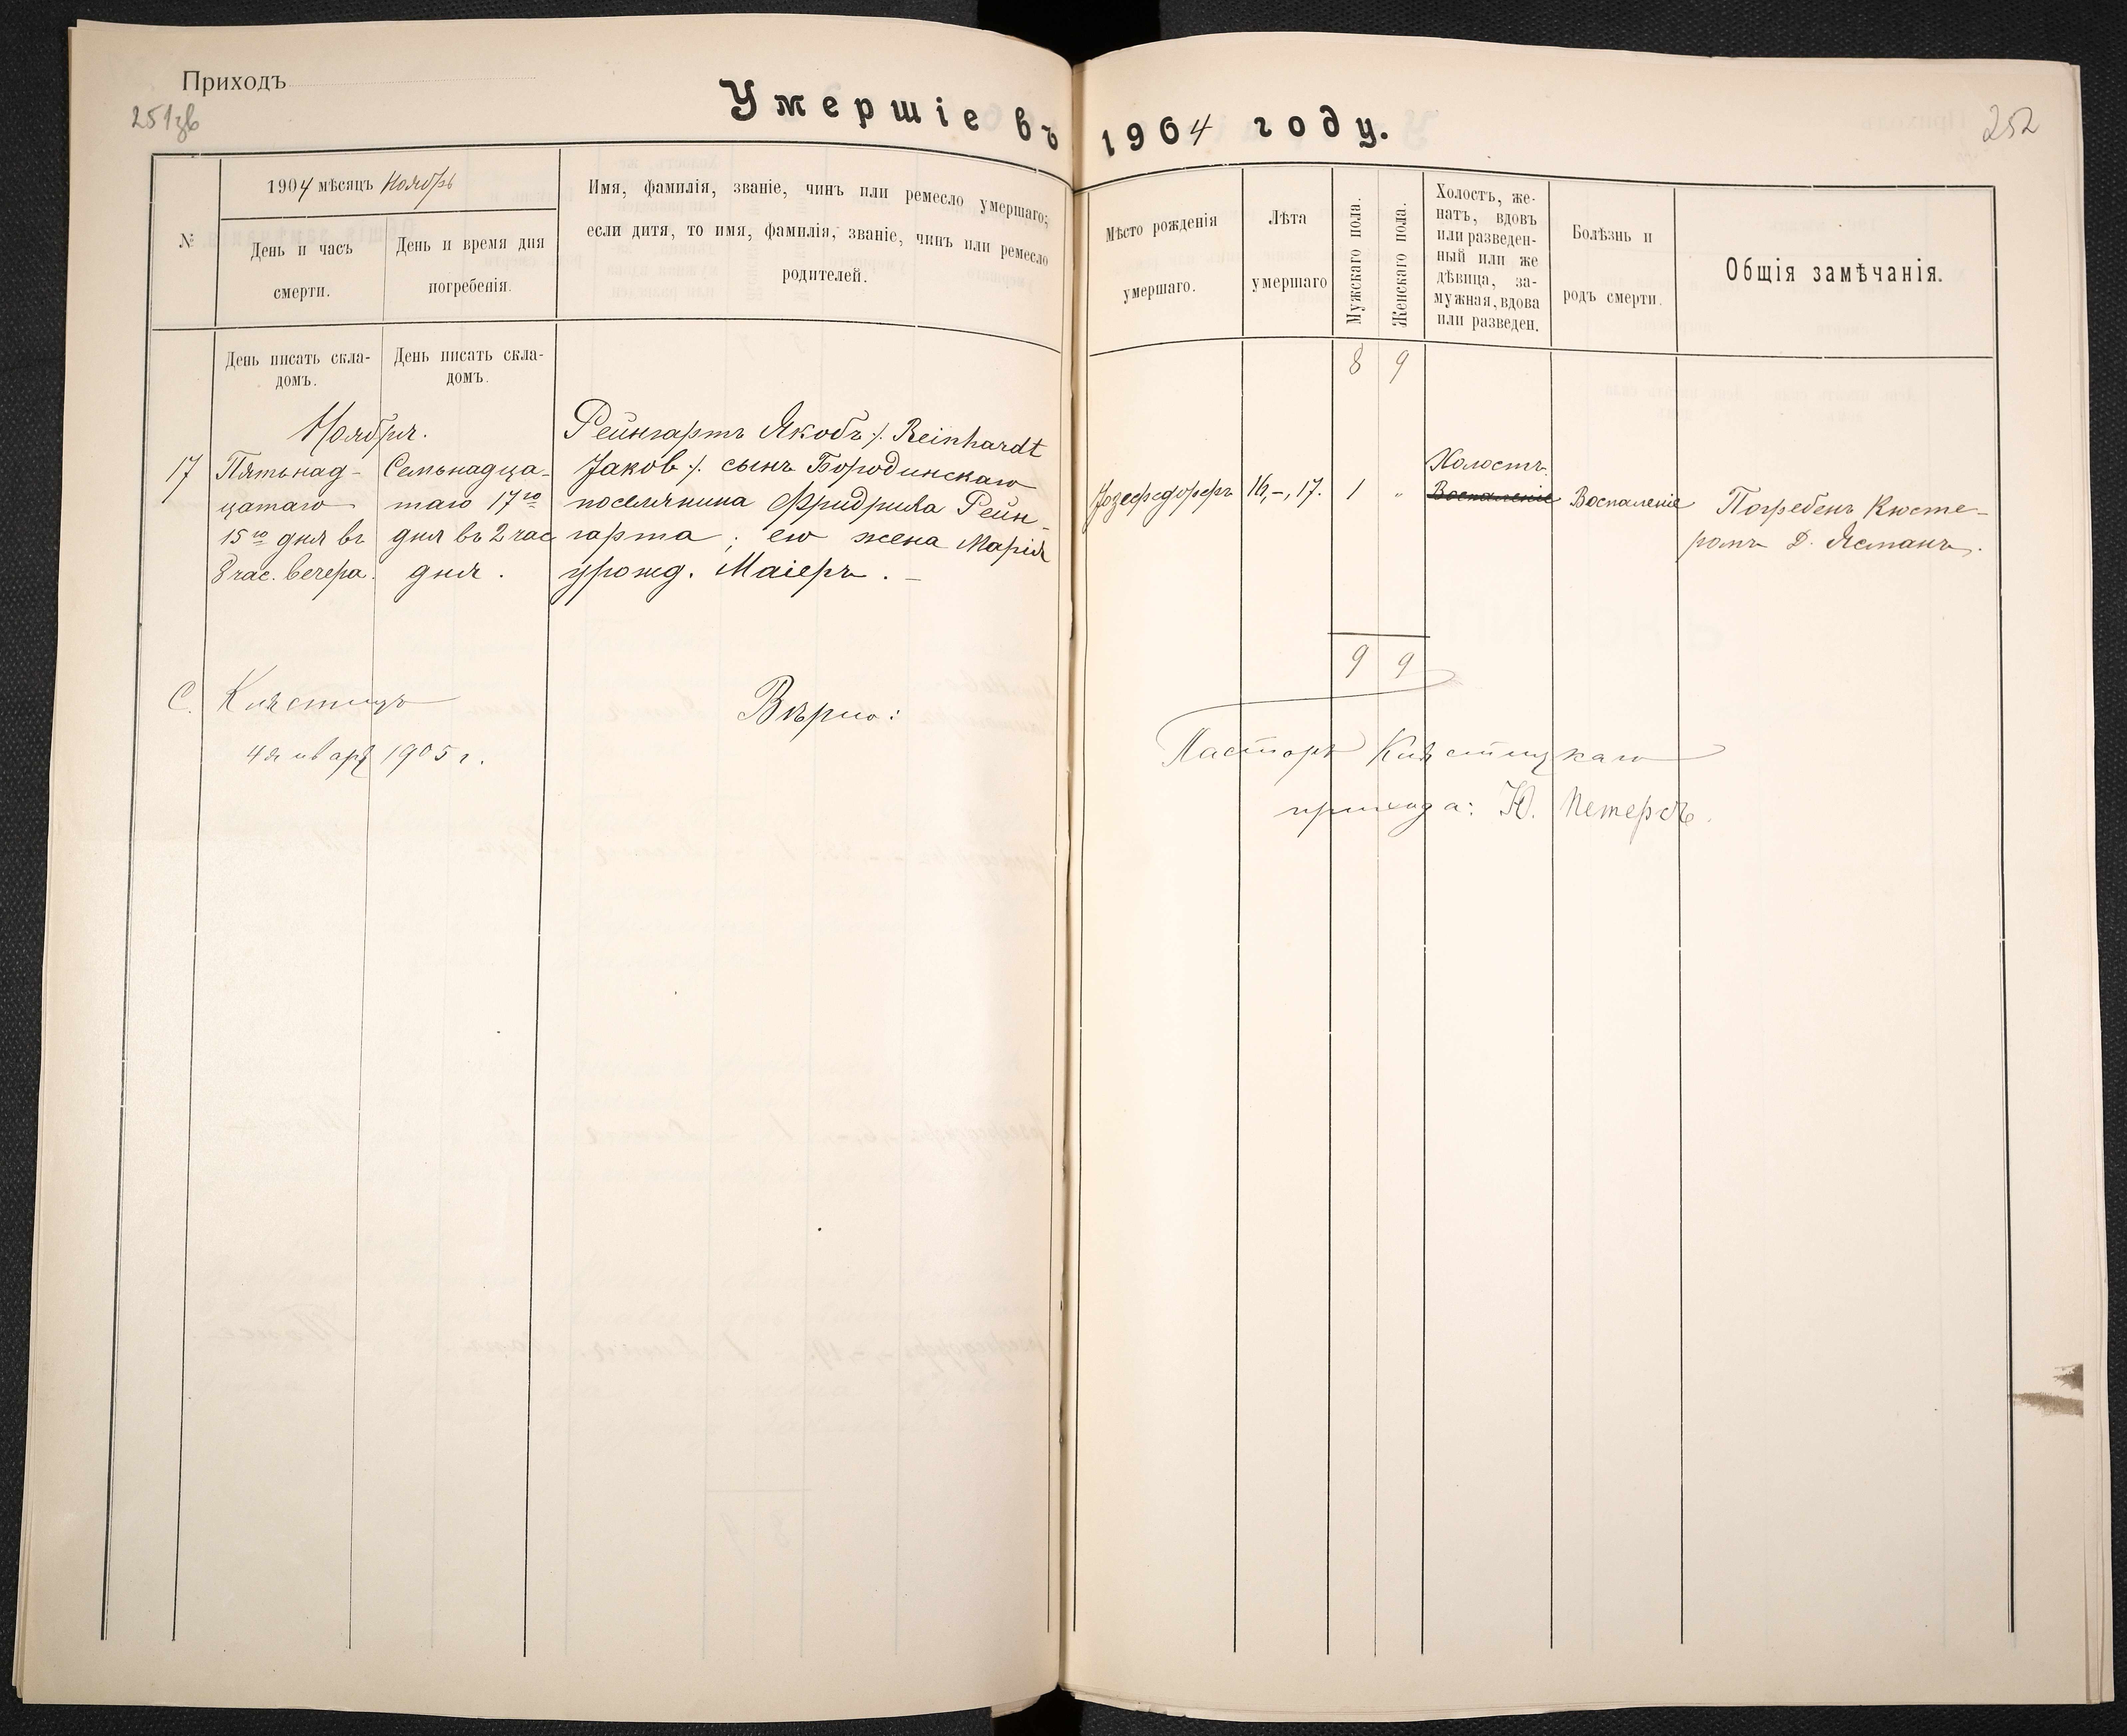 Приходъ
251зв
252
Умершіе въ 1904 году.
№
1904 мѣсяцъ Ноябрь
День и часъ
смерти.
День и время дня
погребенія.
Имя, фамилія, званіе, чинъ или ремесло умершаго;
если дитя, то имя, фамилія, званіе, чинъ или ремесло
родителей.
Мѣсто рожденія
умершаго.
Лѣта
умершаго
Мужскаго пола.
Женскаго пола.
Холостъ, же-
натъ, вдовъ
или разведен-
ный или же
дѣвица, за-
мужная, вдова
или разведен.
Болѣзнь и
родъ смерти.
Общія замѣчанія.
День писать скла-
домъ.
День писать скла-
домъ.
8 9
Ноября.
17
Пятьнад-
цатаго
15го дня въ
8 час. вечера.
Семьнадца-
таго 17го
дня въ 2 час
дня.
Рейнгартъ Якобъ ./. Reinhardt
Jakob ./. сынъ Бородинскаго
поселянина Фридриха Рейн-
гарта; его жена Марія
урожд. Маіеръ. —
Іозефсдорфъ
16,-,17.
1 "
Холостъ.
Воспаленіе
Воспаленіе
Погребенъ Кюсте-
ромъ Д. Ясманъ.
9 9
С. Клястицъ
4 января 1905 г.
Вѣрно:
Пасторъ Клястицкаго
прихода: Ю. Петерсъ.